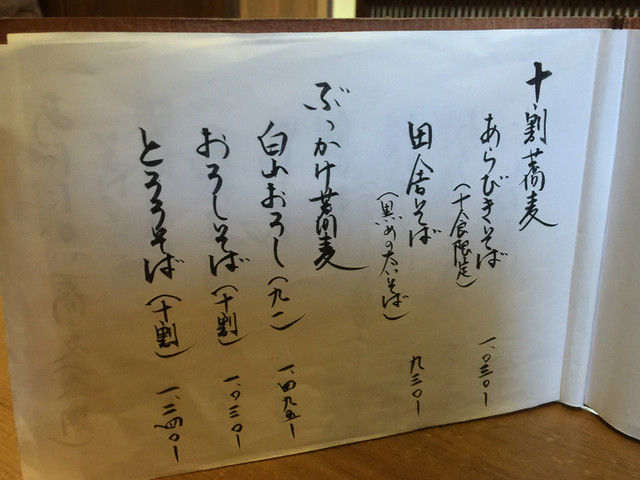 十割蕎麦
あらびきそば
（十食限定）
一、〇三〇ー
田舎そば
（黒めの太いそば）
九三〇ー
ぶっかけ蕎麦
白山おろし（九一）
一、四九五ー
おろしそば（十割）
一、〇三〇ー
とろろそば（十割）
一、二四〇ー